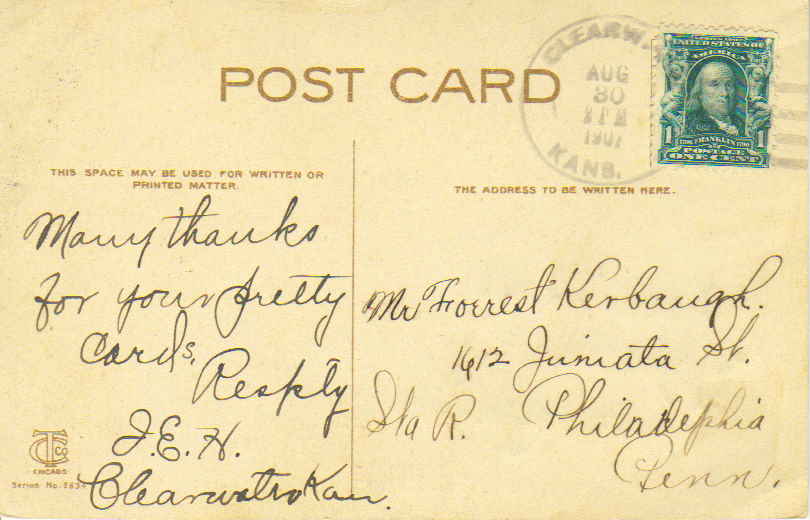 POST CARD
CLEARW
AUG
30
1907
KANS.
UNITED STATES OF
AMERICA
1 FRANKLIN 1
POSTAGE
ONE CENT
THIS SPACE MAY BE USED FOR WRITTEN OR
PRINTED MATTER.
THE ADDRESS TO BE WRITTEN HERE.
Many thanks
for your pretty
cards.
Respkty
J.E.H.
Clearwater Kan.
Mr Forrest Kerbaugh.
1612 Juniata St.
Sta R. Philadelphia
Penn.
CHICAGO
Series No.